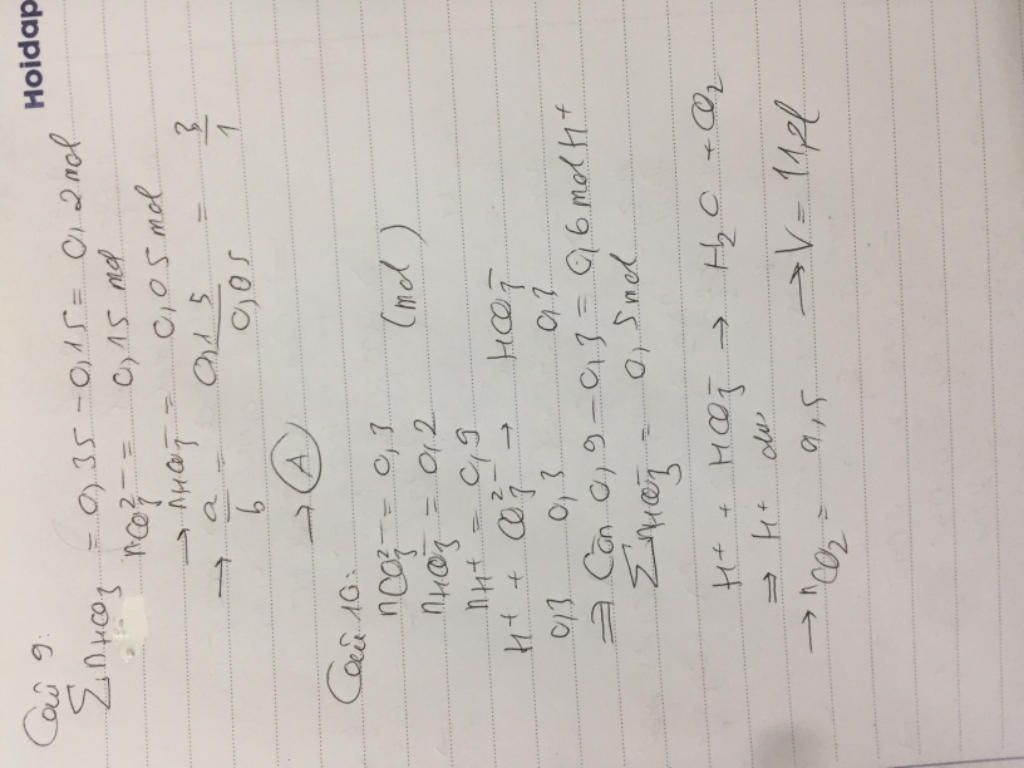 Hoidap
Câu 9:
∑nHCO3 = 0,35 - 0,15 = 0,2 mol
nCO3²⁻ = 0,15 mol
→ nHCO3⁻ = 0,05 mol
→ a/b = 0,15/0,05 = 3/1
→ A
Câu 10:
nCO3²⁻ = 0,3
nHCO3⁻ = 0,2 (mol)
nH+ = 0,9
H+ + CO3²⁻ → HCO3⁻
0,3 0,3 0,3
⇒ Còn 0,9 - 0,3 = 0,6 mol H+
∑nHCO3⁻ = 0,5 mol
H+ + HCO3⁻ → H2O + CO2
⇒ H+ dư
→ nCO2 = 0,5 → V = 11,2l